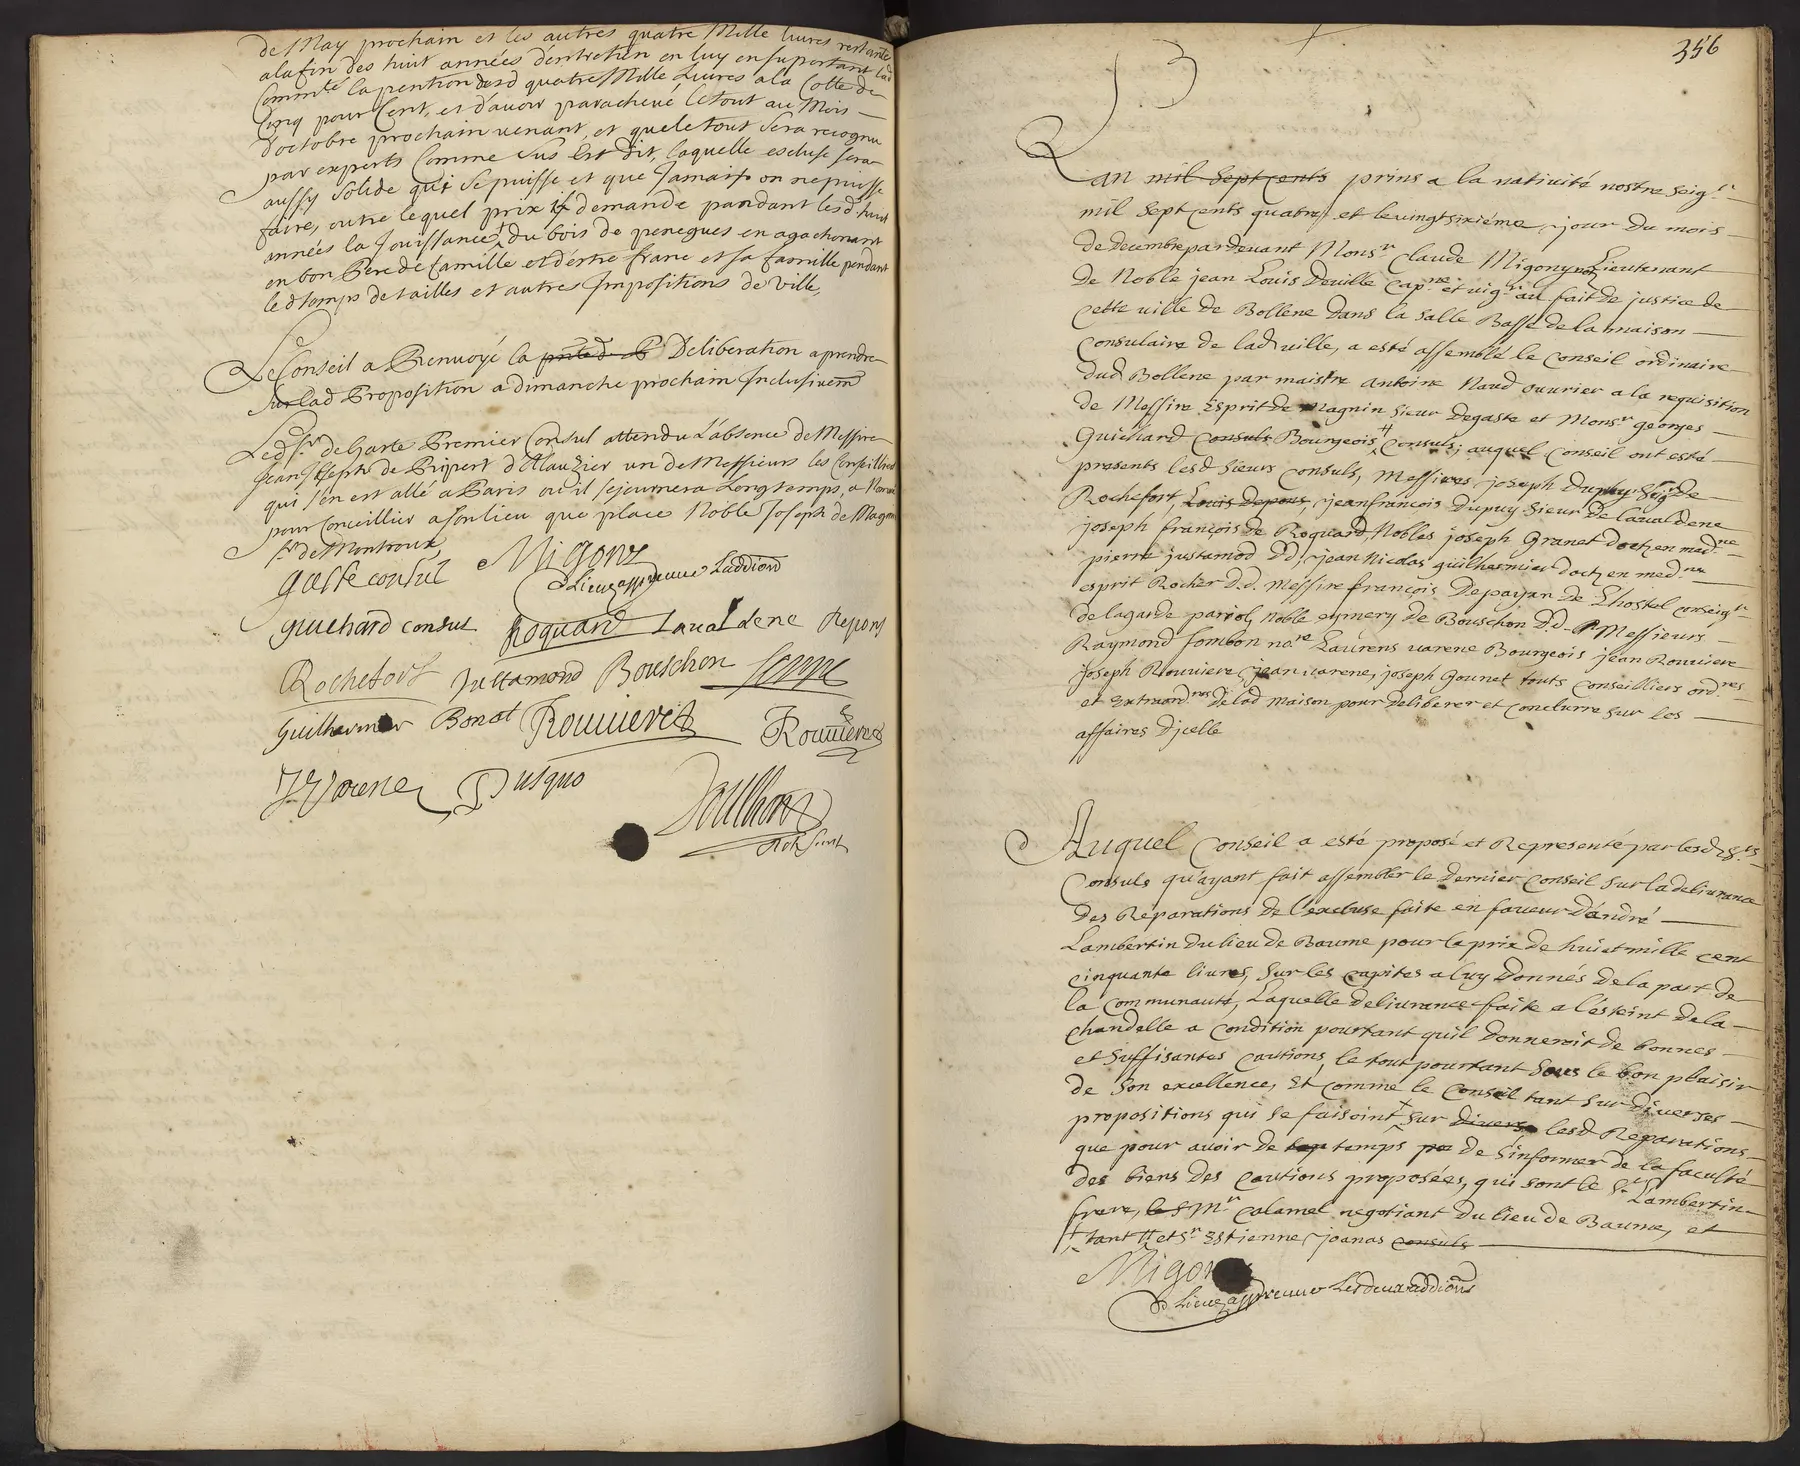 de May prochain et les autres quatre Mille livres restante
alafin des huit années d'entretien en luy en suportant lad
Commté la pention desd quatre Mille Livres a la Cotte de
Cinq pour Cent, et d'avoir parachevé le tout au Mois
d'octobre prochain venant, et que le tout sera recognu
par experts Comme sus Est dit, laquelle escluse sera
aussy solide qu'il se puisse et que Jamais on ne puisse
faire, outre lequel prix il demande pandant lesd huit
années la Jouissance du bois de penegues en agachonant
en bon Pere de famille et d'estre franc et sa famille pendant
led temps de tailles et autres Impositions de Ville,
Le Conseil a Renvoyé la Deliberation a prendre
sur lad Proposition a dimanche prochain Inclusivemt
Led sr de Gaste Premier Consul attendu L'absence de Messire
Jean Joseph de Ripert d'Alauzier un de Messieurs les Conseillers
qui s'en est allé a Paris ou il sejournera Longtemps, a Nomé
pour Conseiller a son lieu que place Noble Joseph de Magnin
sr de Montroux,
Gaste consul Migony
Lieut approuve Laddion
Guichard consul Roquard Lavaldene Depons
Rochefort Justamond Bouschon
Guilhermier Bonot Rouviere Rouviere
J Varene Dusquo

356
Lan mil sept cents prins a la nativité nostre seigr
mil sept cents quatre et le vingtsixiéme jour du mois
de decembre pardevant Monsr Claude Migony Lieutenant
de Noble jean Louis Deville capne et vigr au fait de justice de
cette ville de Bollene dans la salle Basse de la maison
consulaire de lad ville, a esté assemblé le conseil ordinaire
dud Bollene par maistre antoine Naud ouvrier a la requisition
de Messire Esprit de Magnin sieur degaste et Monsr georges
Guichard Consuls Bourgeois # Consuls, auquel conseil ont esté
presents lesd sieurs consuls, Messires joseph Dupuy seigr de
Rochefort, Louis depons, jeanfrançois dupuy sieur de lavaldene
joseph françois de Roquard, Nobles joseph Granet doct en medne
pierre justamod DD, jean Nicolas guilhermier doct en medne
esprit Rocher D.d. Messire françois Depayan de Lhostel conseigr
de lagarde pariol, noble eymery de Bouschon D.d. Messieurs
Raymond sombon nore Laurens varene Bourgeois jean Rouviere
joseph Rouviere, jean varene, joseph Gounet touts conseilliers ordres
et Extraordres de lad maison pour deliberer et conclurre sur les
affaires d'jcelle
Auquel Conseil a esté proposé et Representé par lesd srs
Consuls qu'ayant fait assembler le dernier conseil sur la delivrance
des Reparations de l'excluse faite en faveur d'andré
Lambertin du lieu de Baume pour le prix de huict mille cent
cinquante livres, sur les capites a luy donnés de la part de
la communauté, Laquelle delivrance faite a l'ésteint de la
chandelle a condition pourtant quil donneroit de bonnes
et suffisantes cautions, le tout pourtant sous le bon plaisir
de son excellence, Et comme le conseil tant sur diverses
propositions qui se faisoint sur divers lesd Reparations
que pour avoir de temps de s'informer de la faculté
des biens des cautions proposées, qui sont le sr Lambertin
frere, le s Mr calamel negotiant du lieu de Baume, et
tant # et sr Estienne joanas consuls
Migony
Lieut approuve Les deux addions